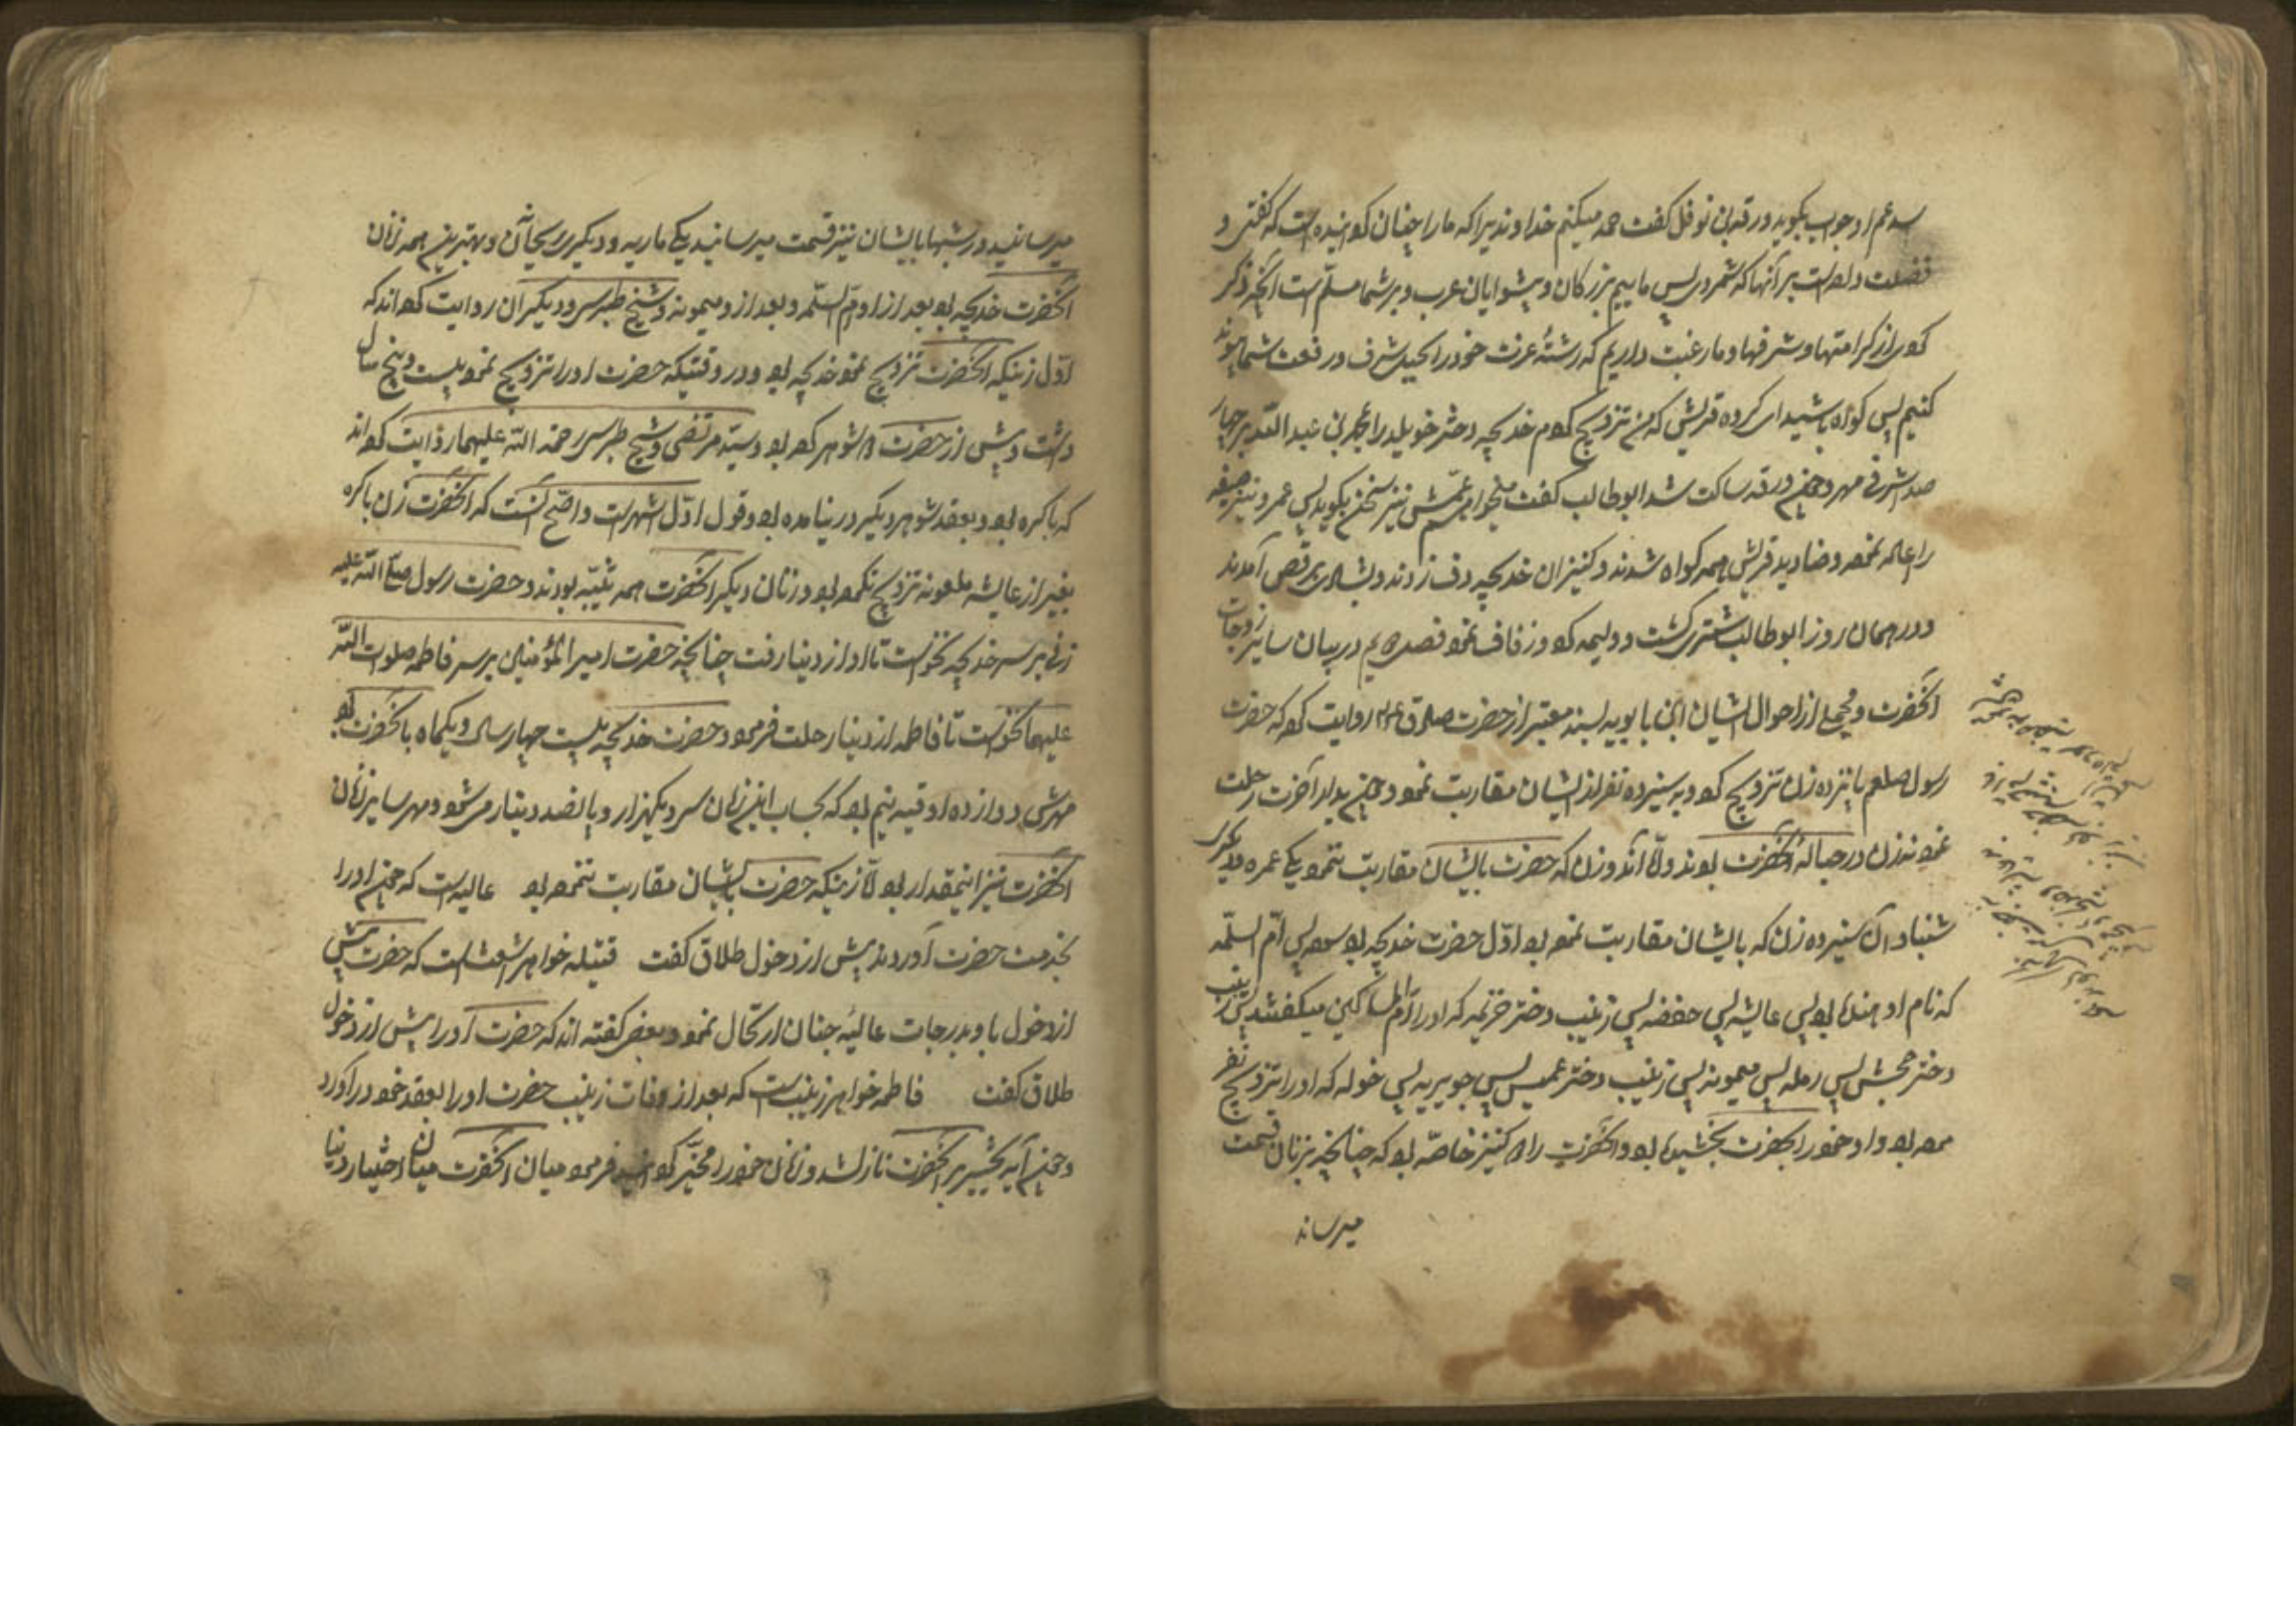 عم او جواب بگوید ورقه بن نوفل گفت حمد میکنم خداوندیرا که ما را چنان گردانیده است که گفتی و
فضیلت داده است بر آنها که شمردی پس ماییم بزرگان و پیشوایان عرب و بر شما مسلّم است آنچه ذکر
کردی از کرامتها و شرفها و ما رغبت داریم که رشتهٔ عزت خود را بحبل شرف و رفعت شما پیوند
کنیم پس گواه باشید ای گروه قریش که من تزویج کردم خدیجه دختر خویلد را بمحمد بن عبد اللّه بر چهار
صد اشرفی مهر و چون ورقه ساکت شد ابوطالب گفت میخواهم عمّش نیز سخن بگوید پس عمرو نیز صیغه
را اعاده نموده و صنادید قریش همه گواه شدند و کنیزان خدیجه دف زدند و بشادی برقص آمدند
و در همان روز ابوطالب شتری کشت و ولیمه کرد و زفاف نمود فصل در بیان سایر زوجات
آنحضرت و مجملی از احوال ایشان ابن بابویه بسند معتبر از حضرت صادق روایت کرده که حضرت
رسول صلعم پانزده زن تزویج کرد و به سیزده نفر از ایشان مقاربت نمود و چون بدار آخرت رحلت
نمود نه زن در حبالهٔ آنحضرت بودند و امّا آن دو زن که حضرت با ایشان مقاربت ننمود یکی عمره و دیگری
شنبا و آن سیزده زن که با ایشان مقاربت نمود بود اوّل حضرت خدیجه بود پس امّ السلّمه
که نام او هند بود پس عایشه پس حفصه پس زینب دختر خزیمه که او را امّ المساکین میگفتند پس زینب
دختر جحش پس رمله پس میمونه پس زینب دختر عمیس پس جویریه پس خوله که او را تزویج
بود و او خود را بحضرت بخشیده بود و آنحضرت را کنیز خاصّه بود که چنانچه بزنان قسمت
میرساند
میرسانید در شبها با ایشان نیز قسمت میرسانید یکی ماریه و دیگری ریحانه و بهترین همه زنان
آنحضرت خدیجه بود بعد از او امّ السلّمه و بعد از او میمونه و شیخ طبرسی و دیگران روایت کرده اند که
اوّل زنیکه آنحضرت تزویج نمود خدیجه بود و در وقتیکه حضرت او را تزویج نمود بیست و پنج سال
داشت و پیش از حضرت شوهر کرده بود و سیّد مرتضی و شیخ طبرسی رحمة اللّه علیهما روایت کرده اند
که باکره بود و بعقد شوهر دیگر در نیامده بود و قول اوّل اشهر است و اصّح آنست که آنحضرت زن باکره
بغیر از عایشه ملعونه تزویج نکرده بود و زنان دیگر آنحضرت همه ثیّبه بودند و حضرت رسول صلی اللّه علیه
زنی بر سر خدیجه نخواست تا او از دنیا رفت چنانچه حضرت امیر المؤمنین بر سر فاطمه صلوات اللّه
علیها نخواست تا فاطمه از دنیا رحلت فرمود و حضرت خدیجه بیست چهار سال و یکماه با آنحضرت بود
مهرش دوازده اوقیه نیم بود که بحساب این زمان سر و یکهزار و پانصد دینار می شود و مهر سایر زنان
آنحضرت نیز اینمقدار بود امّا زنیکه حضرت با ایشان مقاربت ننموده بود عالیه است که چون او را
بخدمت حضرت آوردند پیش از دخول طلاق گفت قتیله خواهر اشعث است که حضرت پیش
از دخول با و بدرجات عالیهٔ جنان ارتحال نمود و بعضی گفته اند که حضرت او را پیش از دخول
طلاق گفت فاطمه خواهر زینب است که بعد از وفات زینب حضرت او را بعقد خود درآورد
و چون آیه تخییر بر آنحضرت نازل شد و زنان خود را مخیّر گردانید فرمود میان آنحضرت میان اختیار دنیا